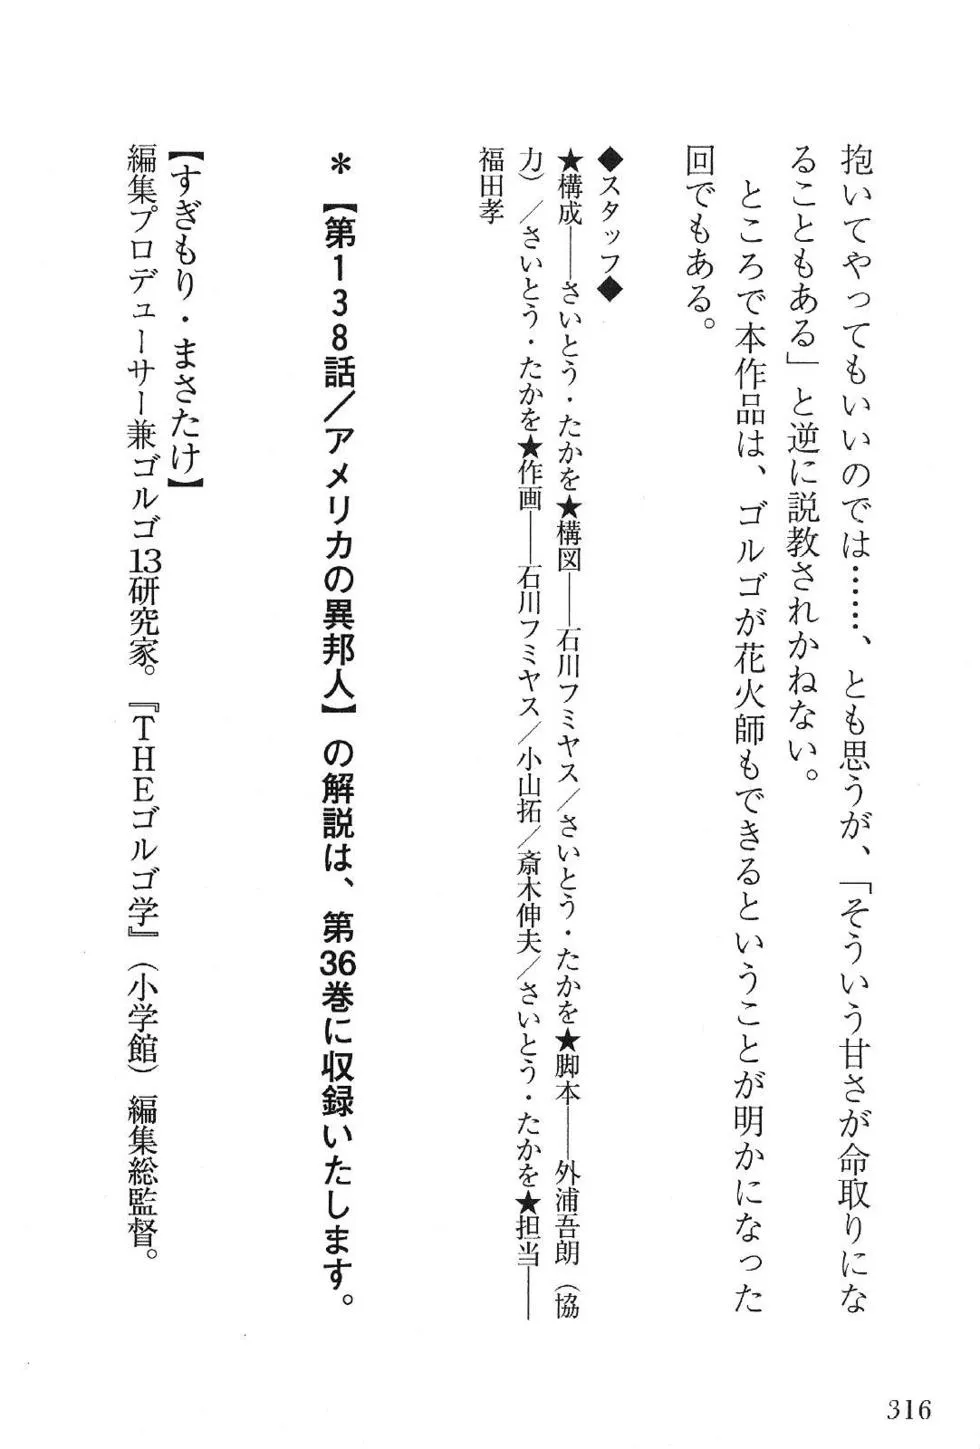 抱いてやってもいいのでは……、とも思うが、「そういう甘さが命取りにな
ることもある」と逆に説教されかねない。
　ところで本作品は、ゴルゴが花火師もできるということが明かになった
回でもある。
◆スタッフ◆
★構成――さいとう・たかを★構図――石川フミヤス／さいとう・たかを★脚本――外浦吾朗（協
力）／さいとう・たかを★作画――石川フミヤス／小山拓／斎木伸夫／さいとう・たかを★担当――
福田孝
＊【第138話／アメリカの異邦人】の解説は、第36巻に収録いたします。
【すぎもり・まさたけ】
編集プロデューサー兼ゴルゴ13研究家。『THEゴルゴ学』（小学館）編集総監督。
316